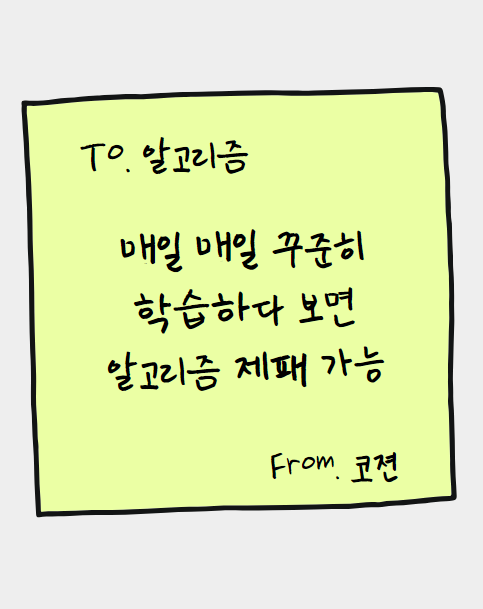 To. 알고리즘
매일 매일 꾸준히
학습하다 보면
알고리즘 제패 가능
From. 코젼